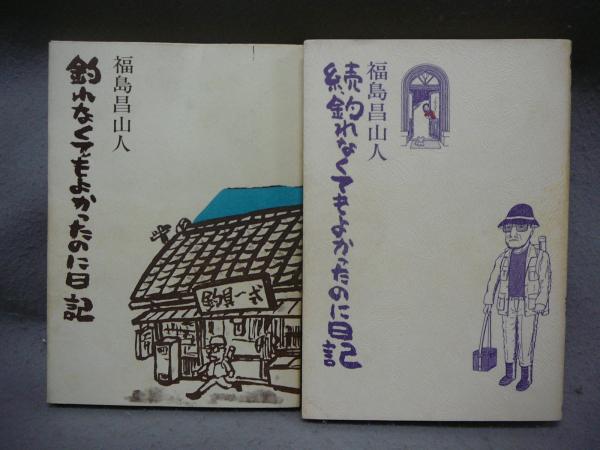 福島昌山人
釣れなくてもよかったのに日記
釣具一式
福島昌山人
続釣れなくてもよかったのに日記